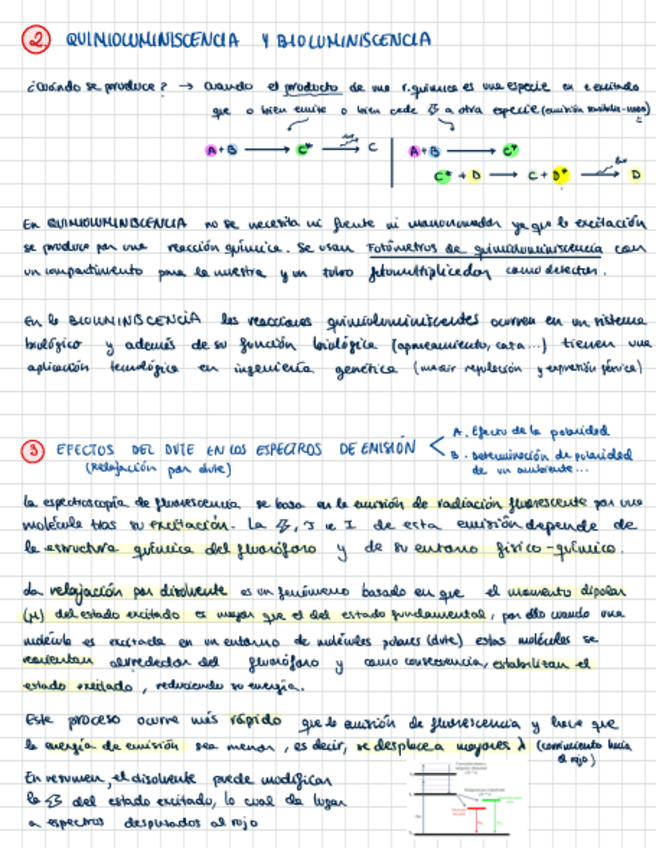 2. QUIMIOLUMINISCENCIA Y BIOLUMINISCENCIA
¿Cuándo se produce? → cuando el producto de una r. química es una especie en e. excitado
que o bien emite o bien cede a otra especie
A + B → C* → C
A + B → C*
C* + D → C + D* → D
En QUIMIOLUMINISCENCIA no se necesita ni fuente ni monocromador ya que la excitación
se produce por una reacción química. Se usan Fotómetros de quimioluminiscencia con
un compartimento para la muestra y un tubo fotomultiplicador como detector.
En la BIOLUMINISCENCIA las reacciones quimioluminiscentes ocurren en un sistema
biológico y además de su función biológica (apareamiento, caza...) tienen una
aplicación tecnológica en ingeniería genética
3 EFECTOS DEL DVTE EN LOS ESPECTROS DE EMISIÓN
(Relajación por dvte)
A. Efecto de la polaridad
B. Determinación de polaridad
de un ambiente...
La espectroscopía de fluorescencia se basa en la emisión de radiación fluorescente por una
molécula tras su excitación. La de esta emisión depende de
la estructura química del fluoróforo y de su entorno físico-químico.
La relajación por disolvente es un fenómeno basado en que el momento dipolar
(μ) del estado excitado es mayor que el del estado fundamental, por ello cuando una
molécula es excitada en un entorno de moléculas polares (dvte) estas moléculas se
reorientan alrededor del fluoróforo y como consecuencia, estabilizan el
estado excitado, reduciendo su energía.
Este proceso ocurre más rápido que la emisión de fluorescencia y hace que
la energía de emisión sea menor, es decir, se desplace a mayores λ (corrimiento hacia
el rojo)
En resumen, el disolvente puede modificar
la del estado excitado, lo cual da lugar
a espectros desplazados al rojo